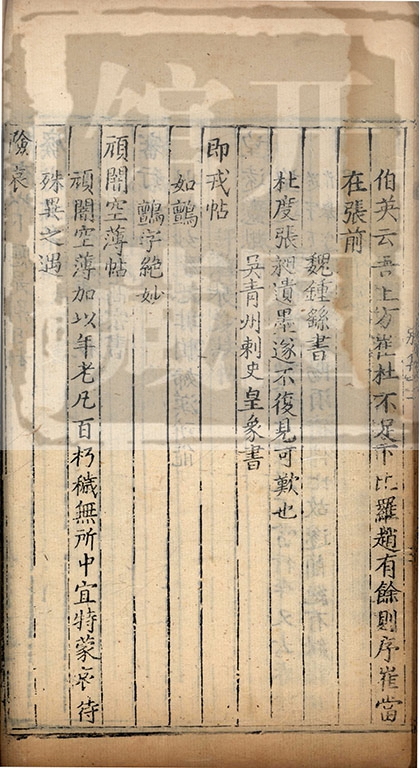 伯英云吾上方崔杜不足下比羅趙有餘則序崔當
在張前
魏鍾繇書
杜度張昶遺墨遂不復見可歎也
吳青州刺史皇象書
即戎帖
如鸇
鸇字絶妙
頑闇空薄帖
頑闇空薄加以年老凡百朽穢無所中宜特蒙哀待
殊異之遇
險哀